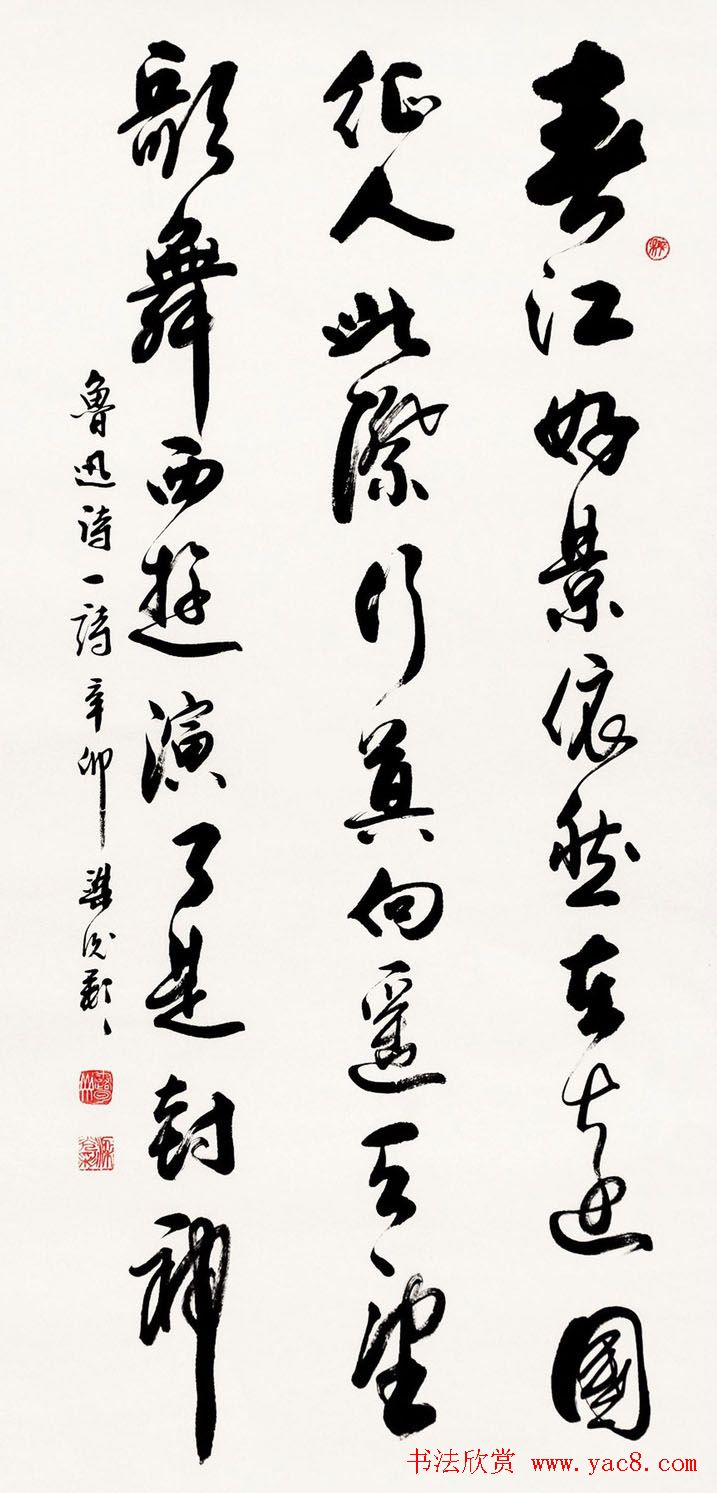 春江好景依然在遠國
征人此際行莫向遥天望
歌舞西遊演了是封神
魯迅詩一詩 辛卯
书法欣赏 www.yac8.com